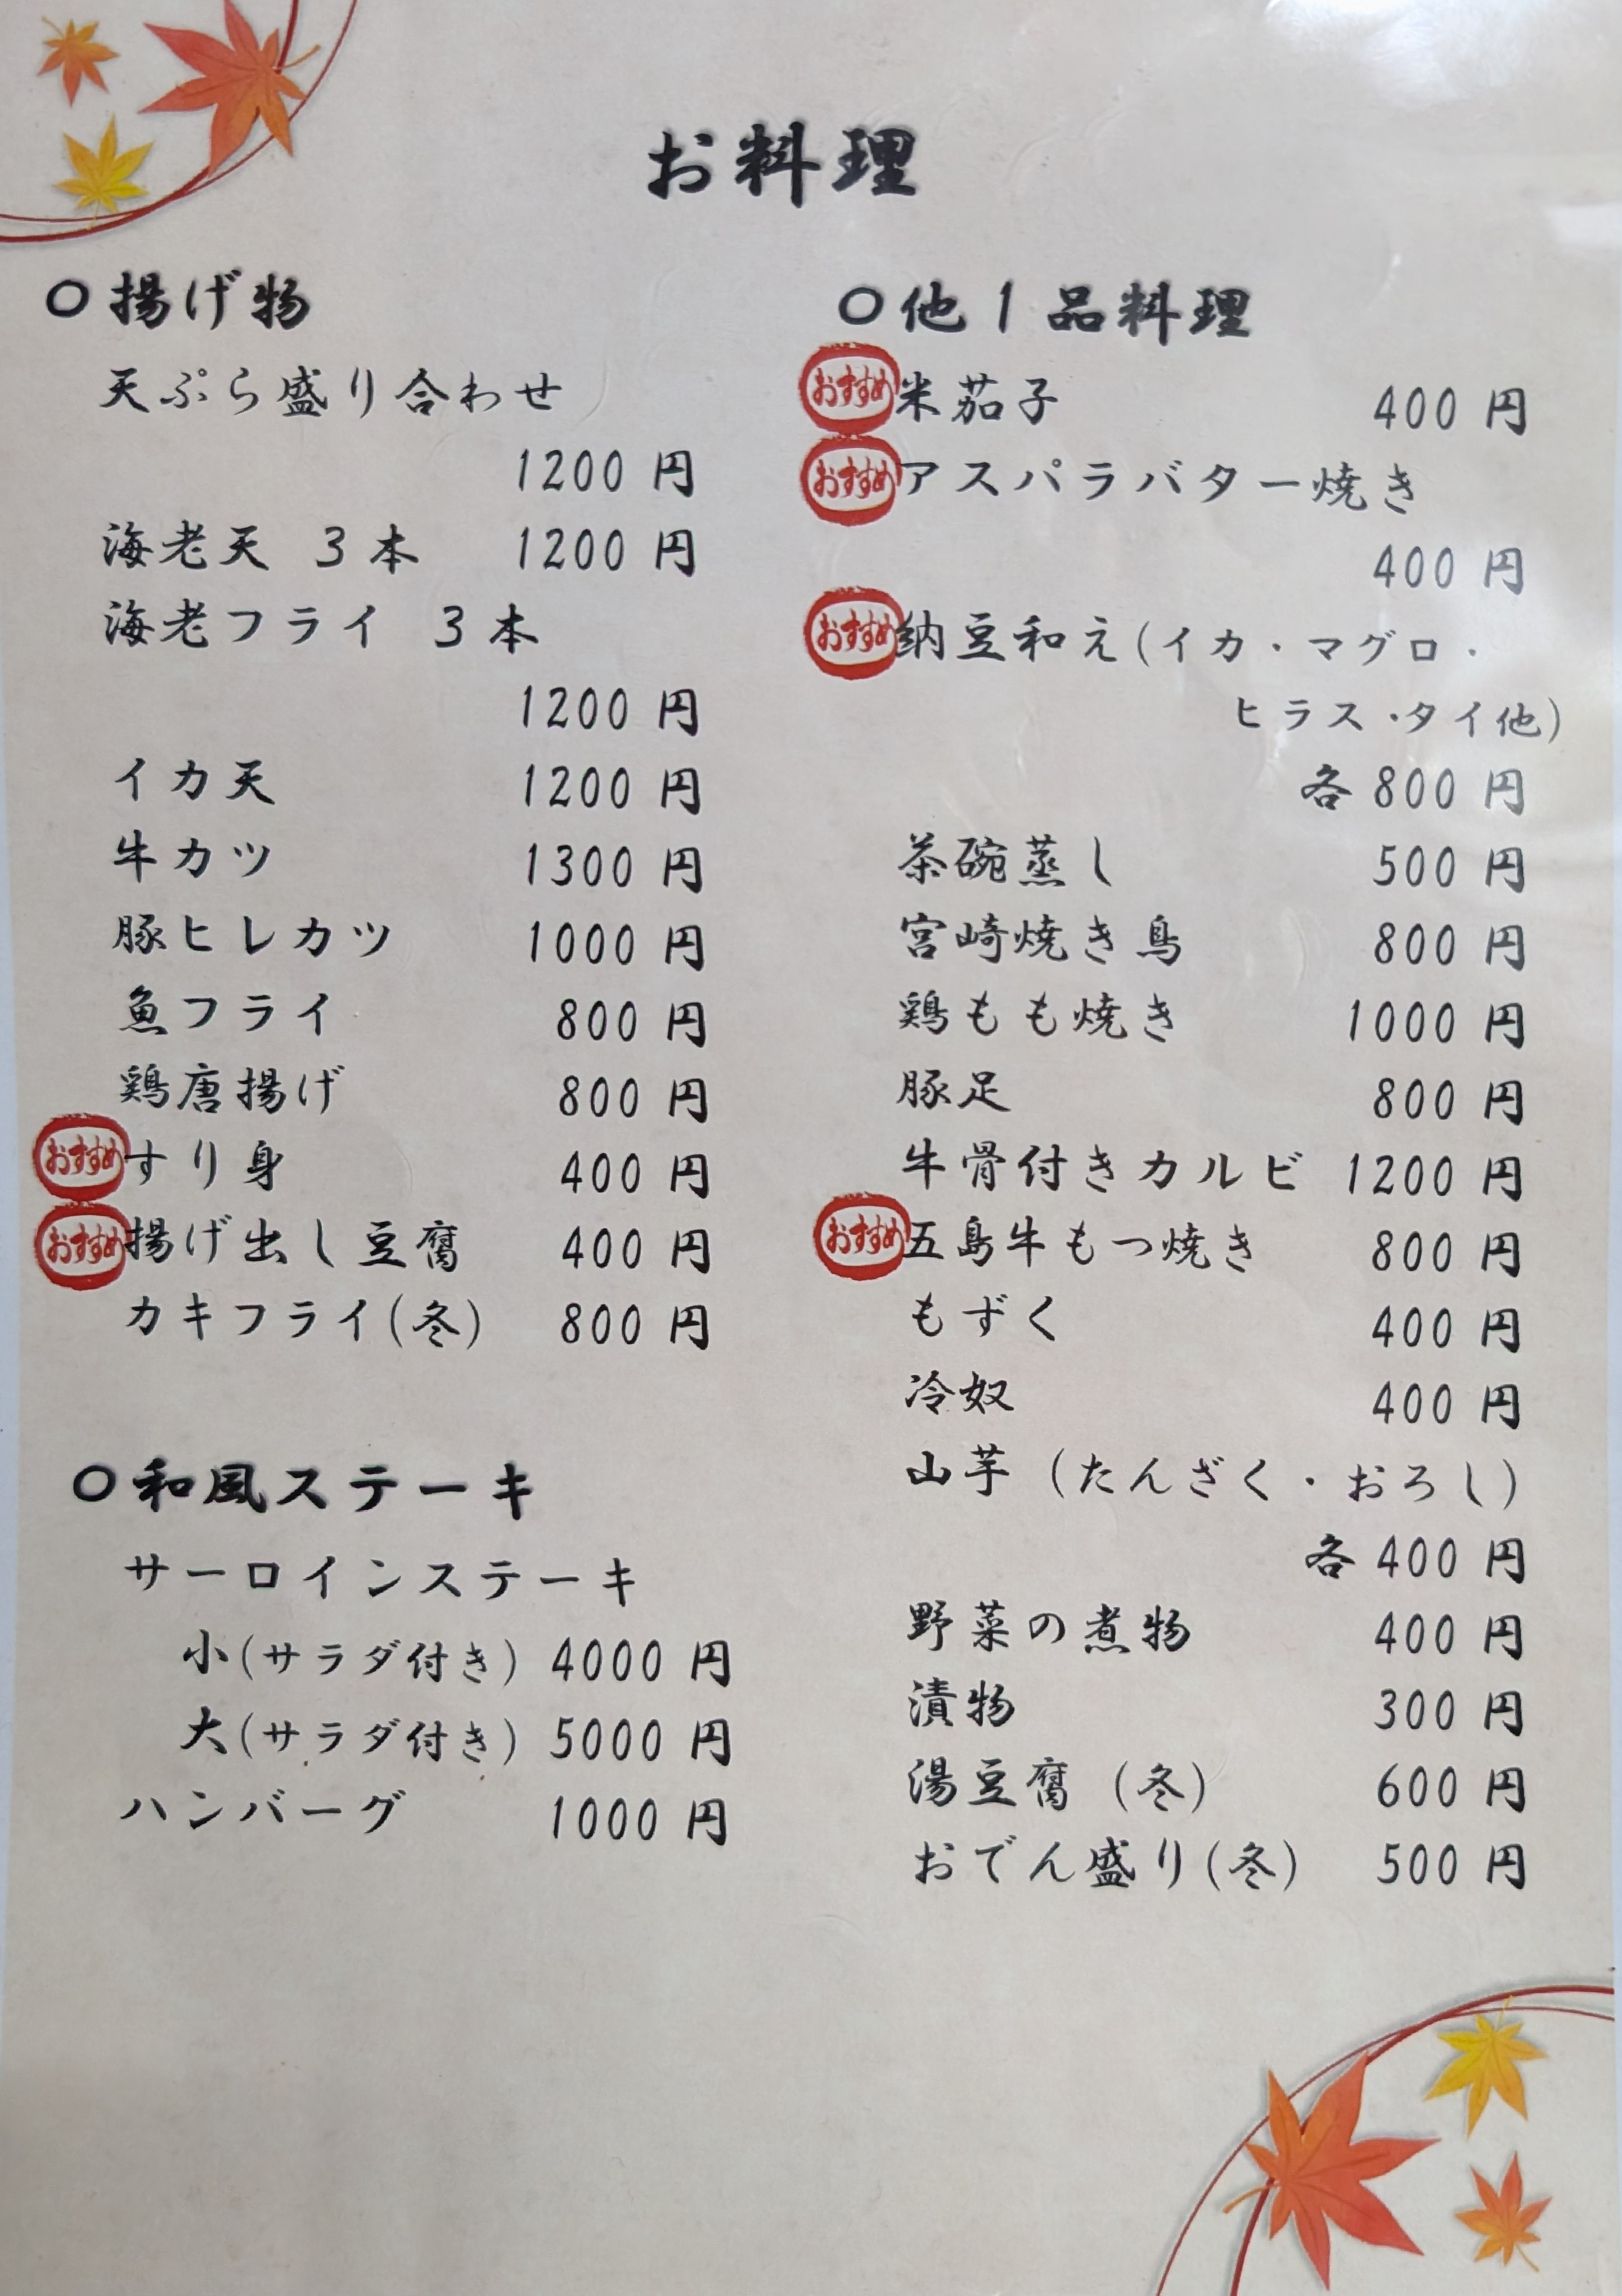 お料理
〇揚げ物
天ぷら盛り合わせ
1200 円
海老天 3本 1200 円
海老フライ 3本
1200 円
イカ天 1200 円
牛カツ 1300 円
豚ヒレカツ 1000 円
魚フライ 800 円
鶏唐揚げ 800 円
おすすめ すり身 400 円
おすすめ 揚げ出し豆腐 400 円
カキフライ(冬) 800 円
〇和風ステーキ
サーロインステーキ
小(サラダ付き) 4000 円
大(サラダ付き) 5000 円
ハンバーグ 1000 円
〇他1品料理
おすすめ 米茄子 400 円
おすすめ アスパラバター焼き
400 円
おすすめ 納豆和え(イカ・マグロ・
ヒラス・タイ他)
各 800 円
茶碗蒸し 500 円
宮崎焼き鳥 800 円
鶏もも焼き 1000 円
豚足 800 円
牛骨付きカルビ 1200 円
おすすめ 五島牛もつ焼き 800 円
もずく 400 円
冷奴 400 円
山芋 (たんざく・おろし)
各 400 円
野菜の煮物 400 円
漬物 300 円
湯豆腐 (冬) 600 円
おでん盛り(冬) 500 円